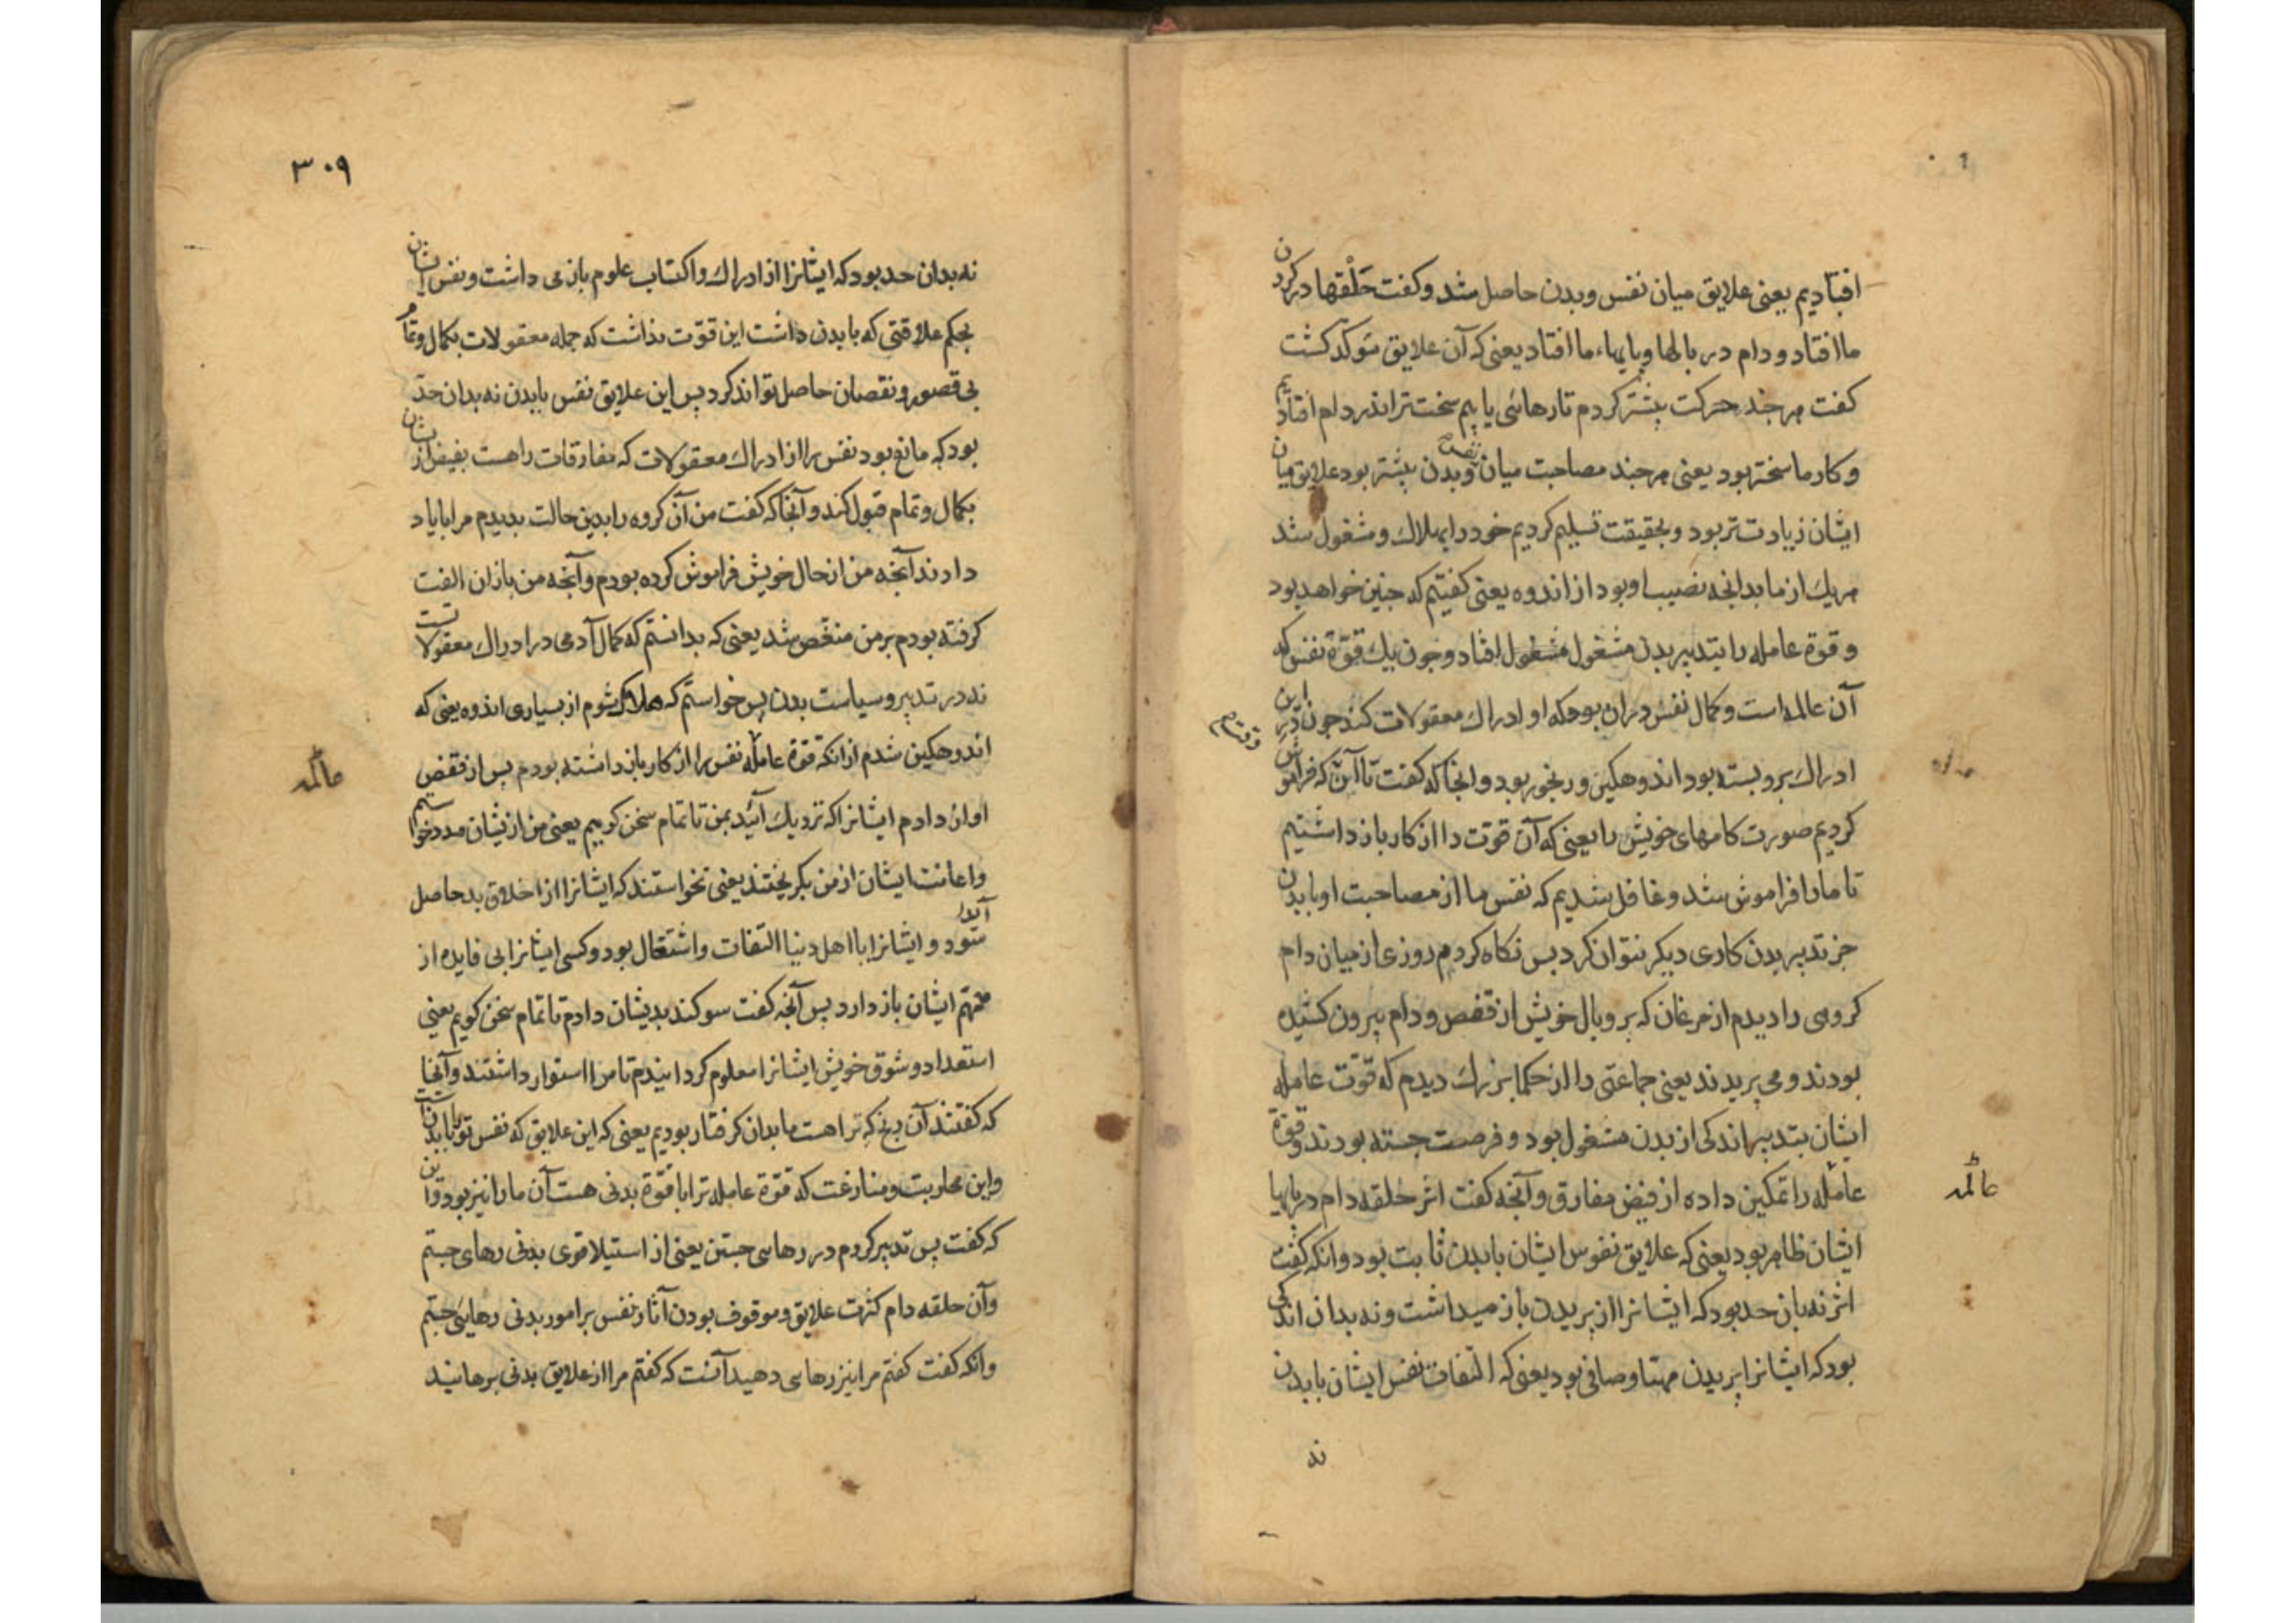 افتادیم یعنی علایق میان نفس و بدن حاصل شد و کفت حَلْقها در کردن
ما افتاد و دام در بالها و پایهاء ما افتاد یعنی که آن علایق متوکد کشت
کفت هرچند حرکت بیشتر کردم تا رهائی یابیم سخت‌تر اندر دام افتادیم
و کار ما سختر بود یعنی هرچند مصاحبت میان نفس و بدن بیشتر بود علایق میان
ایشان زیادت‌تر بود و بحقیقت تسلیم کردیم خود را بهلاک و مشغول شد
هریک از ما بدانچه نصیب او بود از اندوه یعنی کفتیم که چنین خواهد بود
و قوة عامله را بتدبیر بدن مشغول مشغول افتاد و چون یک قوّة نفس که
آن عالمه است و کمال نفس در ان بود که او ادراک معقولات کند چون این در
ادراک برو بسته بود اندوهکین و رنجور بود و انجا که کفت تا آن که فراموش
کردیم صورت کامهای خویش را یعنی که آن قوت را از کار باز داشتیم
تا ما را فراموش شد و غافل شدیم که نفس ما از مصاحبت او با بدن
جز تدبیر بدن کاری دیکر نتوان کرد پس نکاه کردم روزی از میان دام
کروهی را دیدم از مرغان که پر و بال خویش از قفص و دام بیرون کشیده
بودند و می پریدند یعنی جماعتی را از حکما بزرک دیدم که قوّت عامله
ایشان بتدبیر اندکی از بدن مشغول بود و فرصت جسته بودند و قوة
عامله را تمکین داده از فیض مفارق و آنچه کفت اثر حلقه دام در پایها
عالمه
ایشان ظاهر بود یعنی که علایق نفوس ایشان با بدن ثابت بود و انکه کفت
اثر نه بان حد بود که ایشانرا از پریدن باز میداشت و نه بدان اندکی
بود که ایشانرا پریدن مهنا و صافی بود یعنی که التفات نفس ایشان با بدن
نه
۳۰۹
نه بدان حد بود که ایشانرا از ادراک و اکتساب علوم باز می داشت و نفس ایشان
بحکم علاقتی که با بدن داشت این قوّت نداشت که جمله معقولات بکمال و تمام
بی قصور و نقصان حاصل تواند کرد پس این علایق نفس با بدن نه بدان حدّ
بود که مانع بود نفس را از ادراک معقولات که مفارقات راهست بفیض از ایشان
بکمال و تمام قبول کند و آنجا که کفت من آن کروه را بدین حالت بدیدم مرا با یاد
دادند آنچه من از حال خویش فراموش کرده بودم و آنچه من بازان الفت
کرفته بودم بر من منغّص شد یعنی که بدانستم که کمال آدمی در ادراک معقولاتست
نه در تدبیر و سیاست بدن پس خواستم که هلاک شوم از بسیاری اندوه یعنی که
اندوهکین شدم از انکه قوّة عامله نفس را از کار باز داشته بودم پس از قفص
عالمه
اواز دادم ایشانرا که نزدیک آئید بمن تا تمام سخن کوییم یعنی من ازیشان مدد خواستم
و اعانت ایشان از من بکریختند یعنی نخواستند که ایشانرا از اخلاق بد حاصل
شود و ایشانرا با اهل دنیا التفات و اشتغال بود و کسی ایشانرا بی فایده از
مهتم ایشان باز دارد پس آنچه کفت سوکند بدیشان دادم تا تمام سخن کویم یعنی
استعداد و شوق خویش ایشانرا معلوم کردانیدم تا مرا استوار داشتند و آنجا
که کفتند آن رنج که ترا هست ما بدان کرفتار بودیم یعنی که این علایق که نفس ترا با بدنست
و این محاربت و منازعت که قوّة عامله ترا با قوّة بدنی هست آن ما را نیز بود و این
که کفت پس تدبیر کردم در رهایی جستن یعنی از استیلا قوی بدنی رهای جستم
وآن حلقه دام کثرت علایق و موقوف بودن آثار نفس بر امور بدنی رهایی جستم
و انکه کفت کفتم مرا نیز رهایی دهید آنست که کفتم مرا از علایق بدنی برهانید